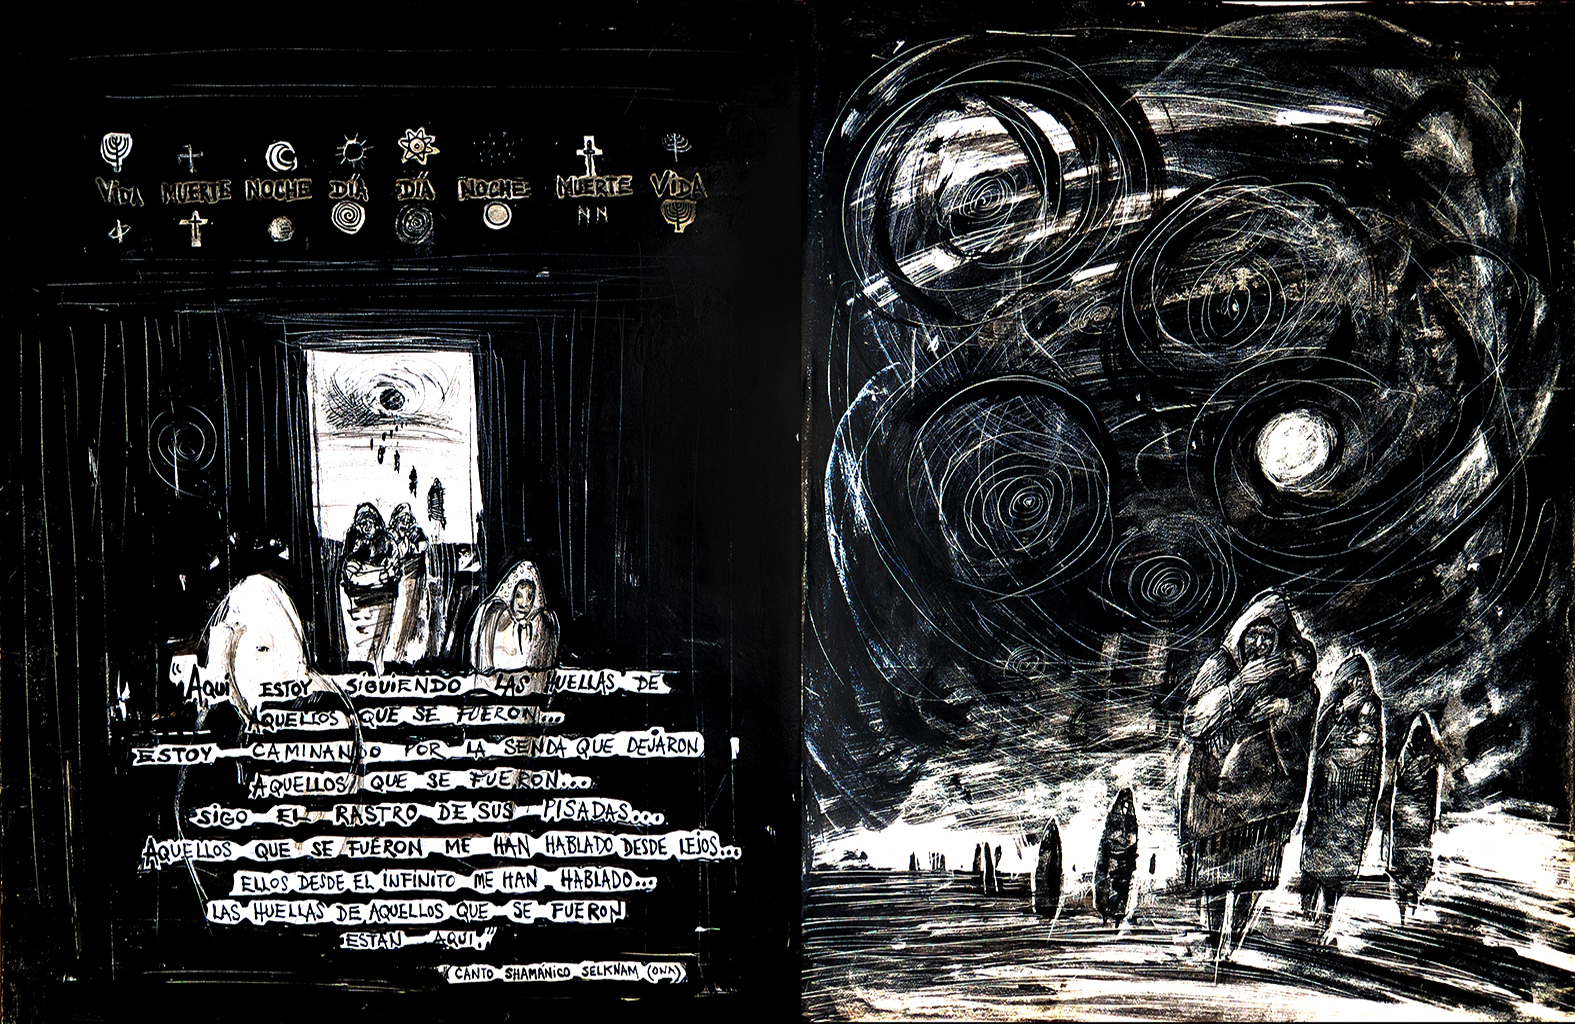 VIDA MUERTE NOCHE DÍA DÍA NOCHE MUERTE VIDA
"AQUÍ ESTOY SIGUIENDO LAS HUELLAS DE
AQUELLOS QUE SE FUERON...
ESTOY CAMINANDO POR LA SENDA QUE DEJARON
AQUELLOS QUE SE FUERON...
SIGO EL RASTRO DE SUS PISADAS...
AQUELLOS QUE SE FUERON ME HAN HABLADO DESDE LEJOS...
ELLOS DESDE EL INFINITO ME HAN HABLADO...
LAS HUELLAS DE AQUELLOS QUE SE FUERON
ESTAN AQUI."
(CANTO SHAMÁNICO SELKNAM (ONA)